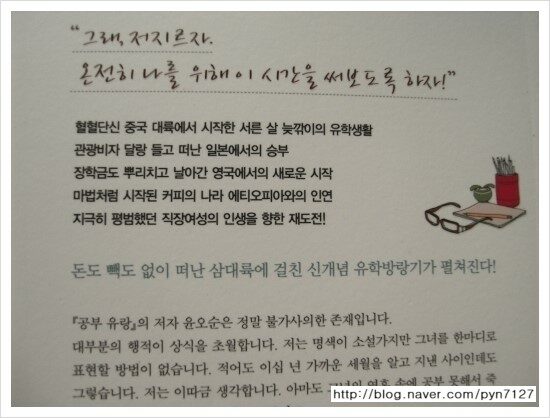 "그래, 저지르자.
온전히 나를 위해 이 시간을 써보도록 하자!"
혈혈단신 중국 대륙에서 시작한 서른 살 늦깎이의 유학생활
관광비자 달랑 들고 떠난 일본에서의 승부
장학금도 뿌리치고 날아간 영국에서의 새로운 시작
마법처럼 시작된 커피의 나라 에티오피아와의 인연
지극히 평범했던 직장여성의 인생을 향한 재도전!
돈도 빽도 없이 떠난 삼대륙에 걸친 신개념 유학방랑기가 펼쳐진다!
『공부 유랑』의 저자 윤오순은 정말 불가사의한 존재입니다.
대부분의 행적이 상식을 초월합니다. 저는 명색이 소설가지만 그녀를 한마디로
표현할 방법이 없습니다. 적어도 이십 년 가까운 세월을 알고 지낸 사이인데도
그렇습니다. 저는 이따금 생각합니다. 아마도 공부 못해서 죽
http://blog.naver.com/pyn7127